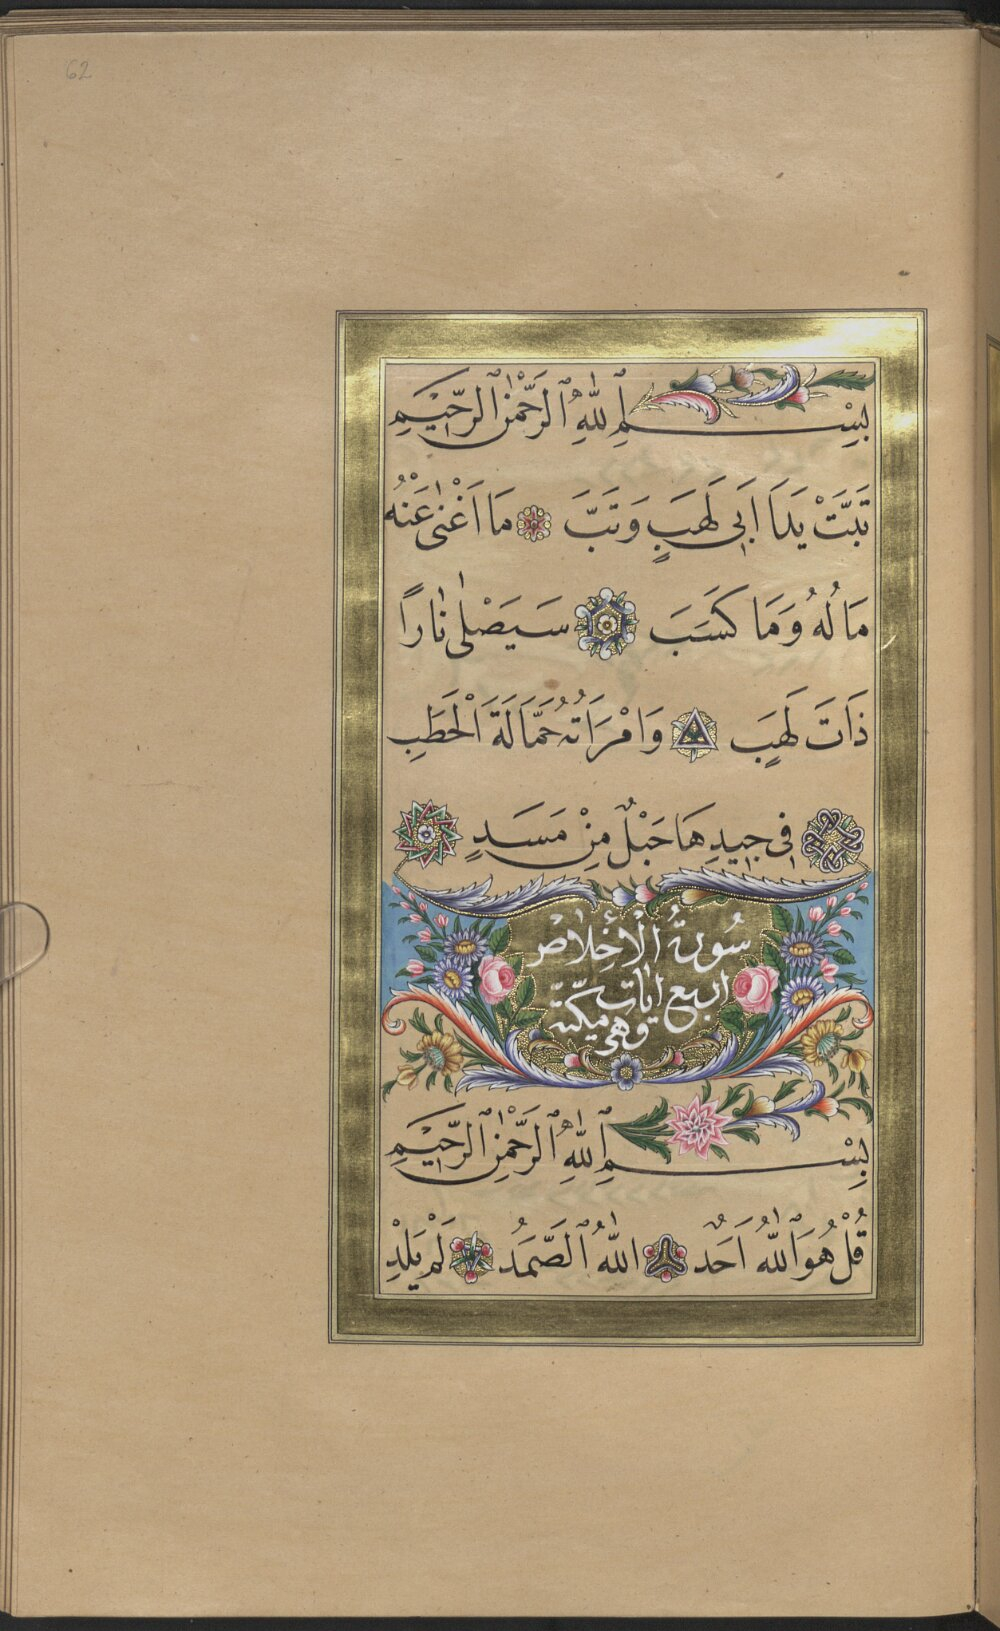 62
بِسْمِ ٱللّٰهِ ٱلرَّحْمٰنِ ٱلرَّحِيمِ
تَبَّتْ يَدَا اَبِى لَهَبٍ وَتَبَّ مَا اَغْنٰى عَنْهُ
مَالُهُ وَمَا كَسَبَ سَيَصْلٰى نَارًا
ذَاتَ لَهَبٍ وَامْرَاَتُهُ حَمَّالَةَ الْحَطَبِ
فِى جِيدِهَا حَبْلٌ مِنْ مَسَدٍ
سُورَةُ الْاِخْلَاصِ
اربع ايات
وهى مكية
بِسْمِ ٱللّٰهِ ٱلرَّحْمٰنِ ٱلرَّحِيمِ
قُلْ هُوَ ٱللّٰهُ اَحَدٌ اللّٰهُ ٱلصَّمَدُ لَمْ يَلِدْ